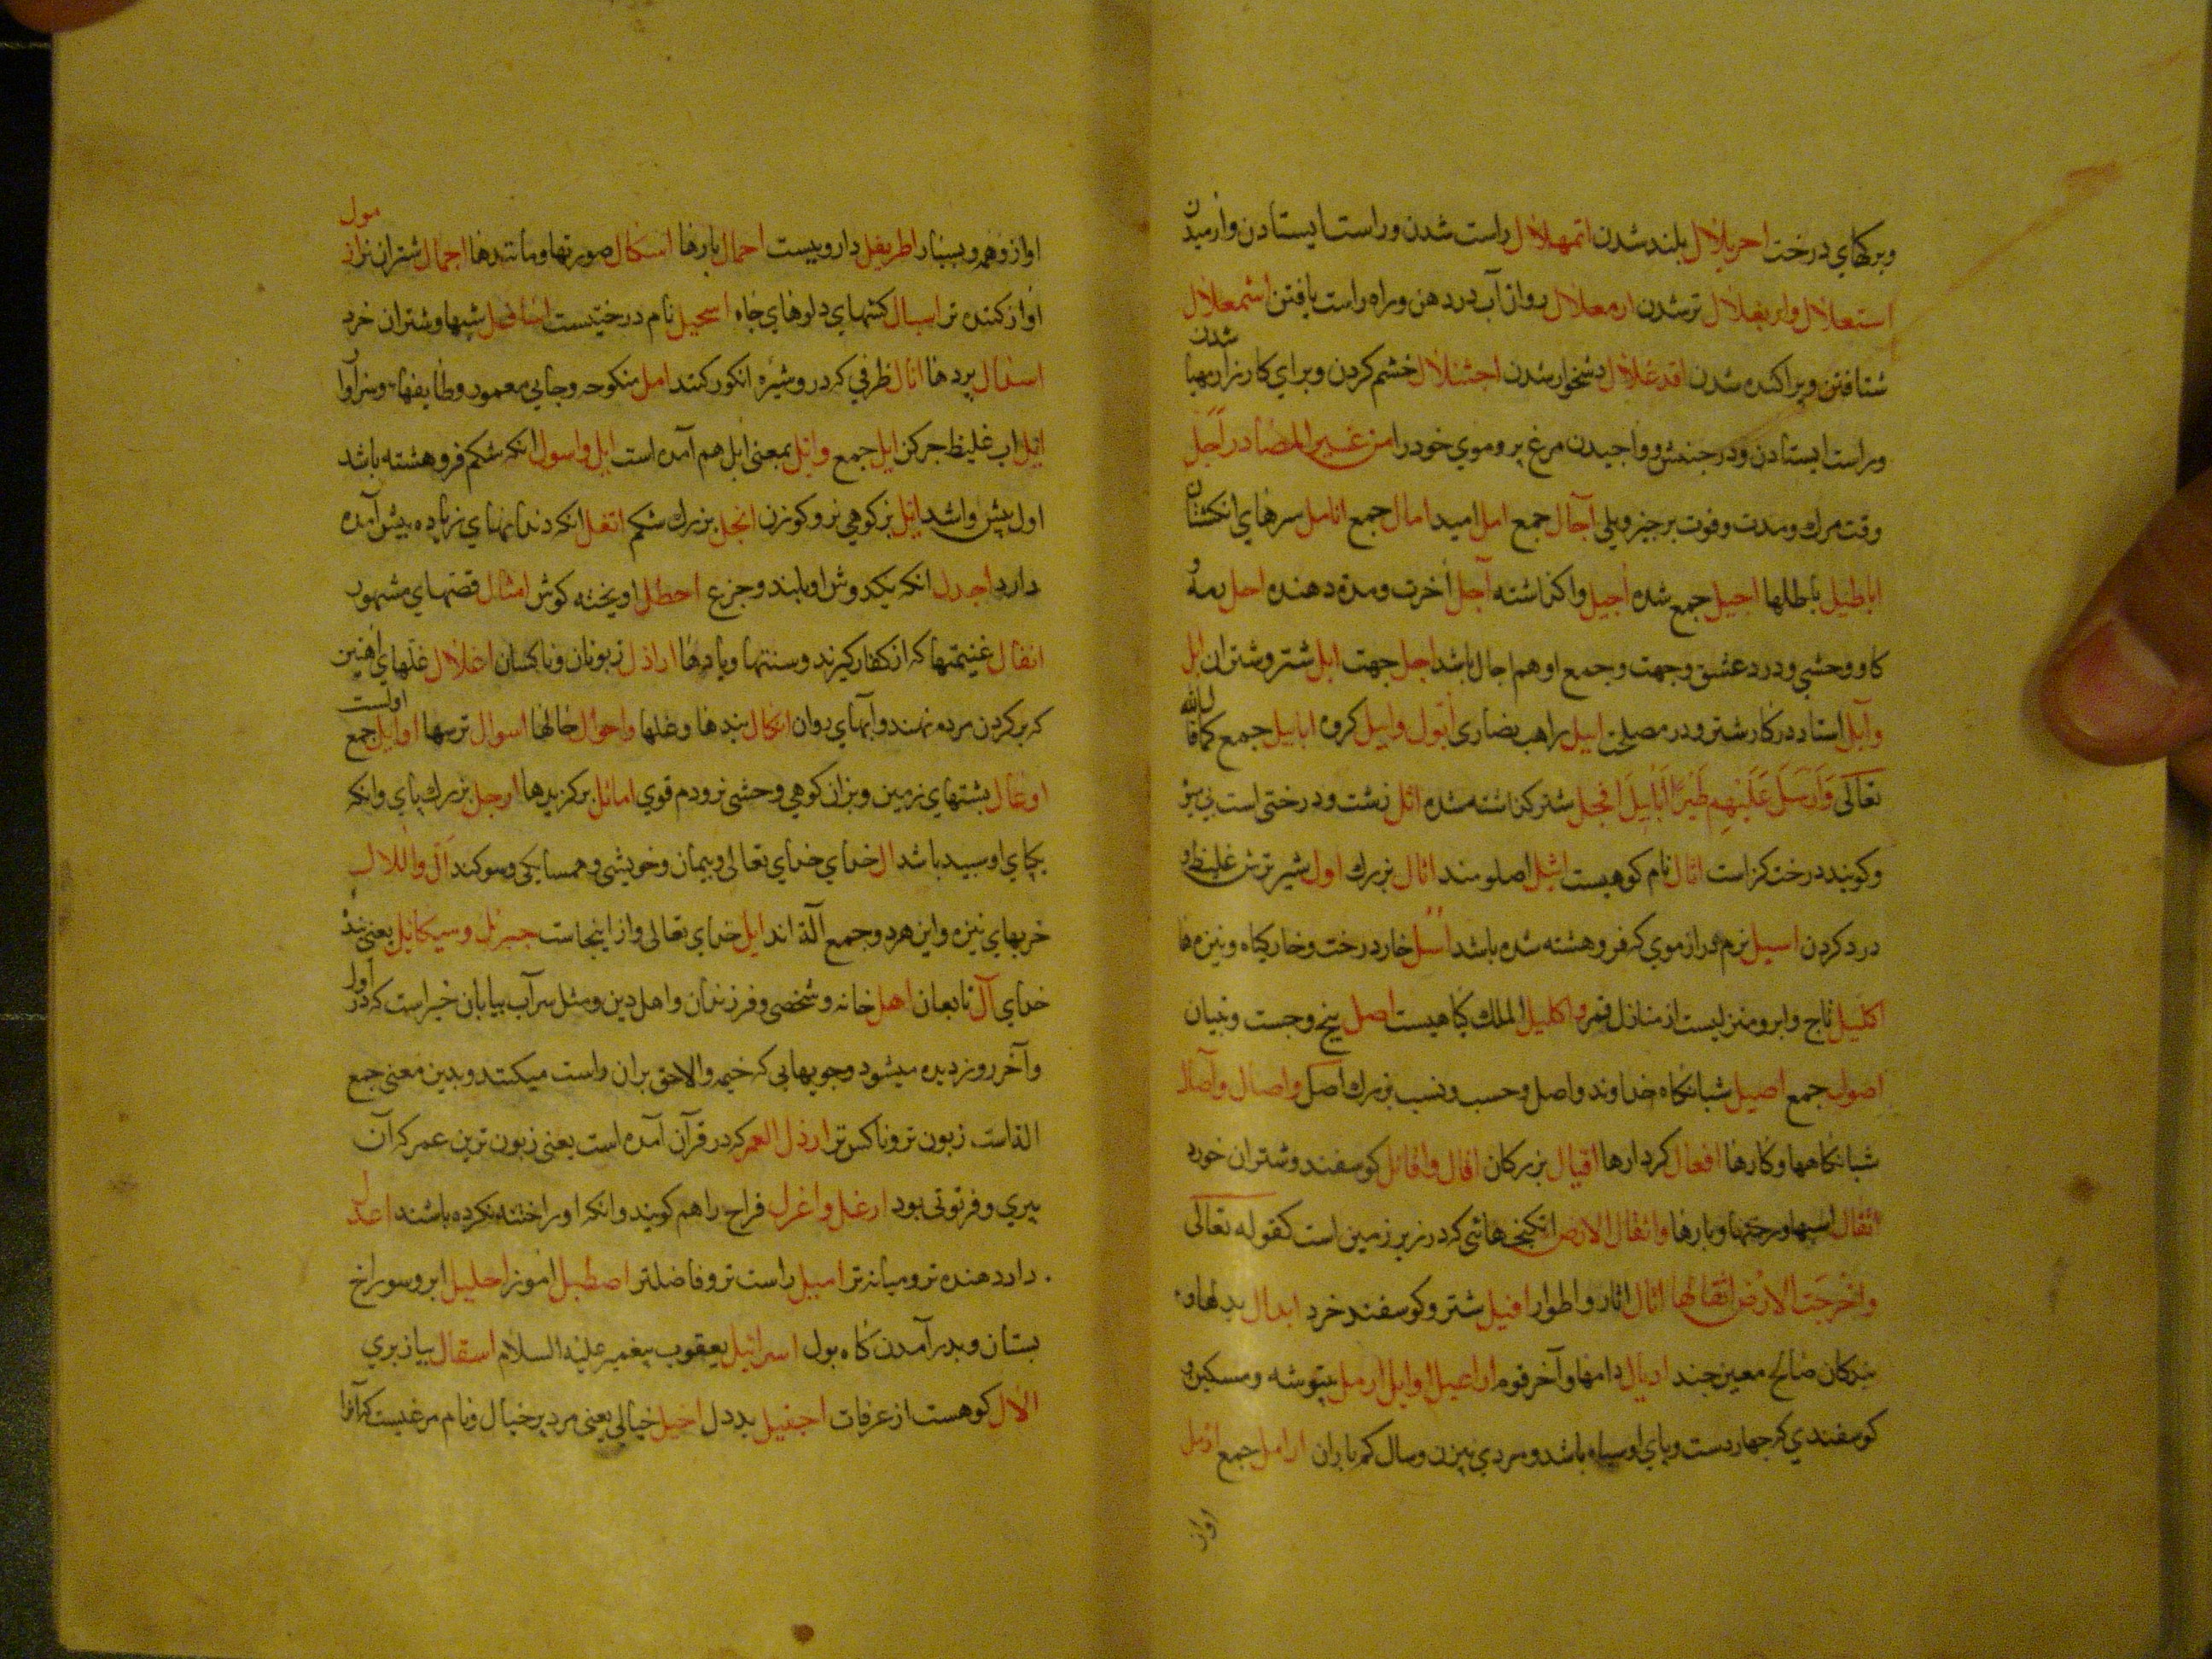 وبرکهای درخت احزیلال بلند شدن اتمهلال راست شدن وراست ایستادن وارمیدن
استعلال وابریغلال تر شدن ارمعلال روان آب در دهن وراه راست یافتن اشمعلال
شتافتن وپراکنده شدن اقذعلال دشخوار شدن اجثئلال خشم کردن وبرای کارزار مهیا شدن
وراست ایستادن ودر جنبش وواجیدن مرغ پر وموی خود را من غیر المصادر اجل
وقت مرك ومدت وفوت هر چیز وبلی آجال جمع امل امید امال جمع انامل سرهای انکشتان
اباطیل باطلها اجیل جمع شده اجیل واکذاشته آجل آخرت ومدة دهنده اجل رمهٔ
کاو وحشی ودرد عشق وجهت وجمع او هم اجال باشد اجل جهت ابل شتر وشتران ابل
وآبل استاد در کار شتر ودر مصلحت ابیل راهب نصاری ابول وابیل کروه ابابیل جمع کما قال الله
تعالی وَاَرْسَلَ عَلَیْهِم طَیْرًا اَبَابِیلَ افجل شتر کذاشته شده اثل زشت ودرختی است بی بر
وکویند درخت کز است اثال نام کوهیست اثیل اصلومند اثال بزرك اول شیر ترش غلیظ و
درد کردن اسیل نرم دراز موی که فرو هشته شده باشد اسل خار درخت وخار کیاه ونیزه ها
اکلیل تاج وابر ومنزلیست از منازل قمر واکلیل الملك کیاهیست اصل بیخ وجست وبنیان
اصول جمع اصیل شبانکاه خداوند واصل وحسب ونسب بزرك اصل واصال وآصال
شبانکاهها وکارها افعال کردارها اقیال بزرکان افال وافائل کوسفند وشتران خورد
اثقال اسبها ورختها وبارها واثقال الارض انکنجهائی که در زیر زمین است کقوله تعالی
واَخْرَجَت الارْضُ اَثْقَالَهَا اثال اثار واطوار افیل شتر وکوسفند خرد ابدال بدلها و
بندکان صالح معین چند اذیال دامنها وآخر قوم اراعیل اوایل ارمل بیتوشه ومسکین و
کوسفندی که چهار دست وپای او سیاه باشد ومردی بیزن وسال کم باران ارامل جمع ازمل
اواز
اواز وهمه وبسیار اطریفل داروییست احمال بارها اشکال صورتها ومانندها اجمال شتران نر ازمول
اواز کننده تر اسبال کشهای دلوهای چاه اسحیل نام درختیست شبها وشتران خرد
اسدال پردها انال ظرفی که در و شیره انکور کنند امل منکوحه وجایی معمور وطایفها وسزاوار
ایل اب غلیظ چرکن ایل جمع وایل بمعنی ابل هم آمده است ابل واسول انکه شکم فرو هشته باشد
اول پیش واشد ایل بز کوهی نر وکوزن انجل بزرك شکم اثعل انکه دندانهای زیاده بیش آمده
دارد اجدل انکه یکدوش او بلند وچرغ احطل اویخته کوش امثال قصتهای مشهور
انفال غنیمتها که از کفار کیرند وسنتها ویادها اراذل زبونان وناکسان اغلال غلهای اهنین
که بر کردن مرده نهند وابهای روان انکال بندها وغلها واحوال حالها اسوال ترسها اوایل جمع اولست
اوعال پشتهای زمین وبزان کوهی وحشی نر ودم قوی اماثل برکزیدها ارجل بزرك پای وانکه
یکپای او سپید باشد ال خدای خدای تعالی وپیمان وخویشی وهمسایکی وسوکند ال واللال
حربهای نیزه واین هر دو جمع آلة اند ایل خدای تعالی واز اینجاست جبرئل ومیکائل یعنی بندهٔ
خدای آل تابعان اهل خانه وشخصی وفرزندان واهل دین ومثل سرآب بیابان خیر است که در اول
وآخر روز دیده میشود وچوبهایی که خیمه والاحق بران راست میکنند وبدین معنی جمع
الة است زبون تر وناکس تر ارذل العمر که در قرآن آمده است یعنی زبون ترین عمر که آن
پیری وفرتوتی بود ارغل واغرل فراخ را هم کویند وانکه او را ختنه نکرده باشند اعدل
داد دهنده تر ومیانه تر امیل راست تر وفاضلتر اصطبل اموز احلیل ابر وسوراخ
پستان وبدر آمدن کاه بول اسرائیل یعقوب پیغمبر علیه السلام اسقال پیاز بری
الال کوهست از عرفات اجفیل بددل اخیل خیالی یعنی مرد پر خیال ونام مرغیست که آنرا